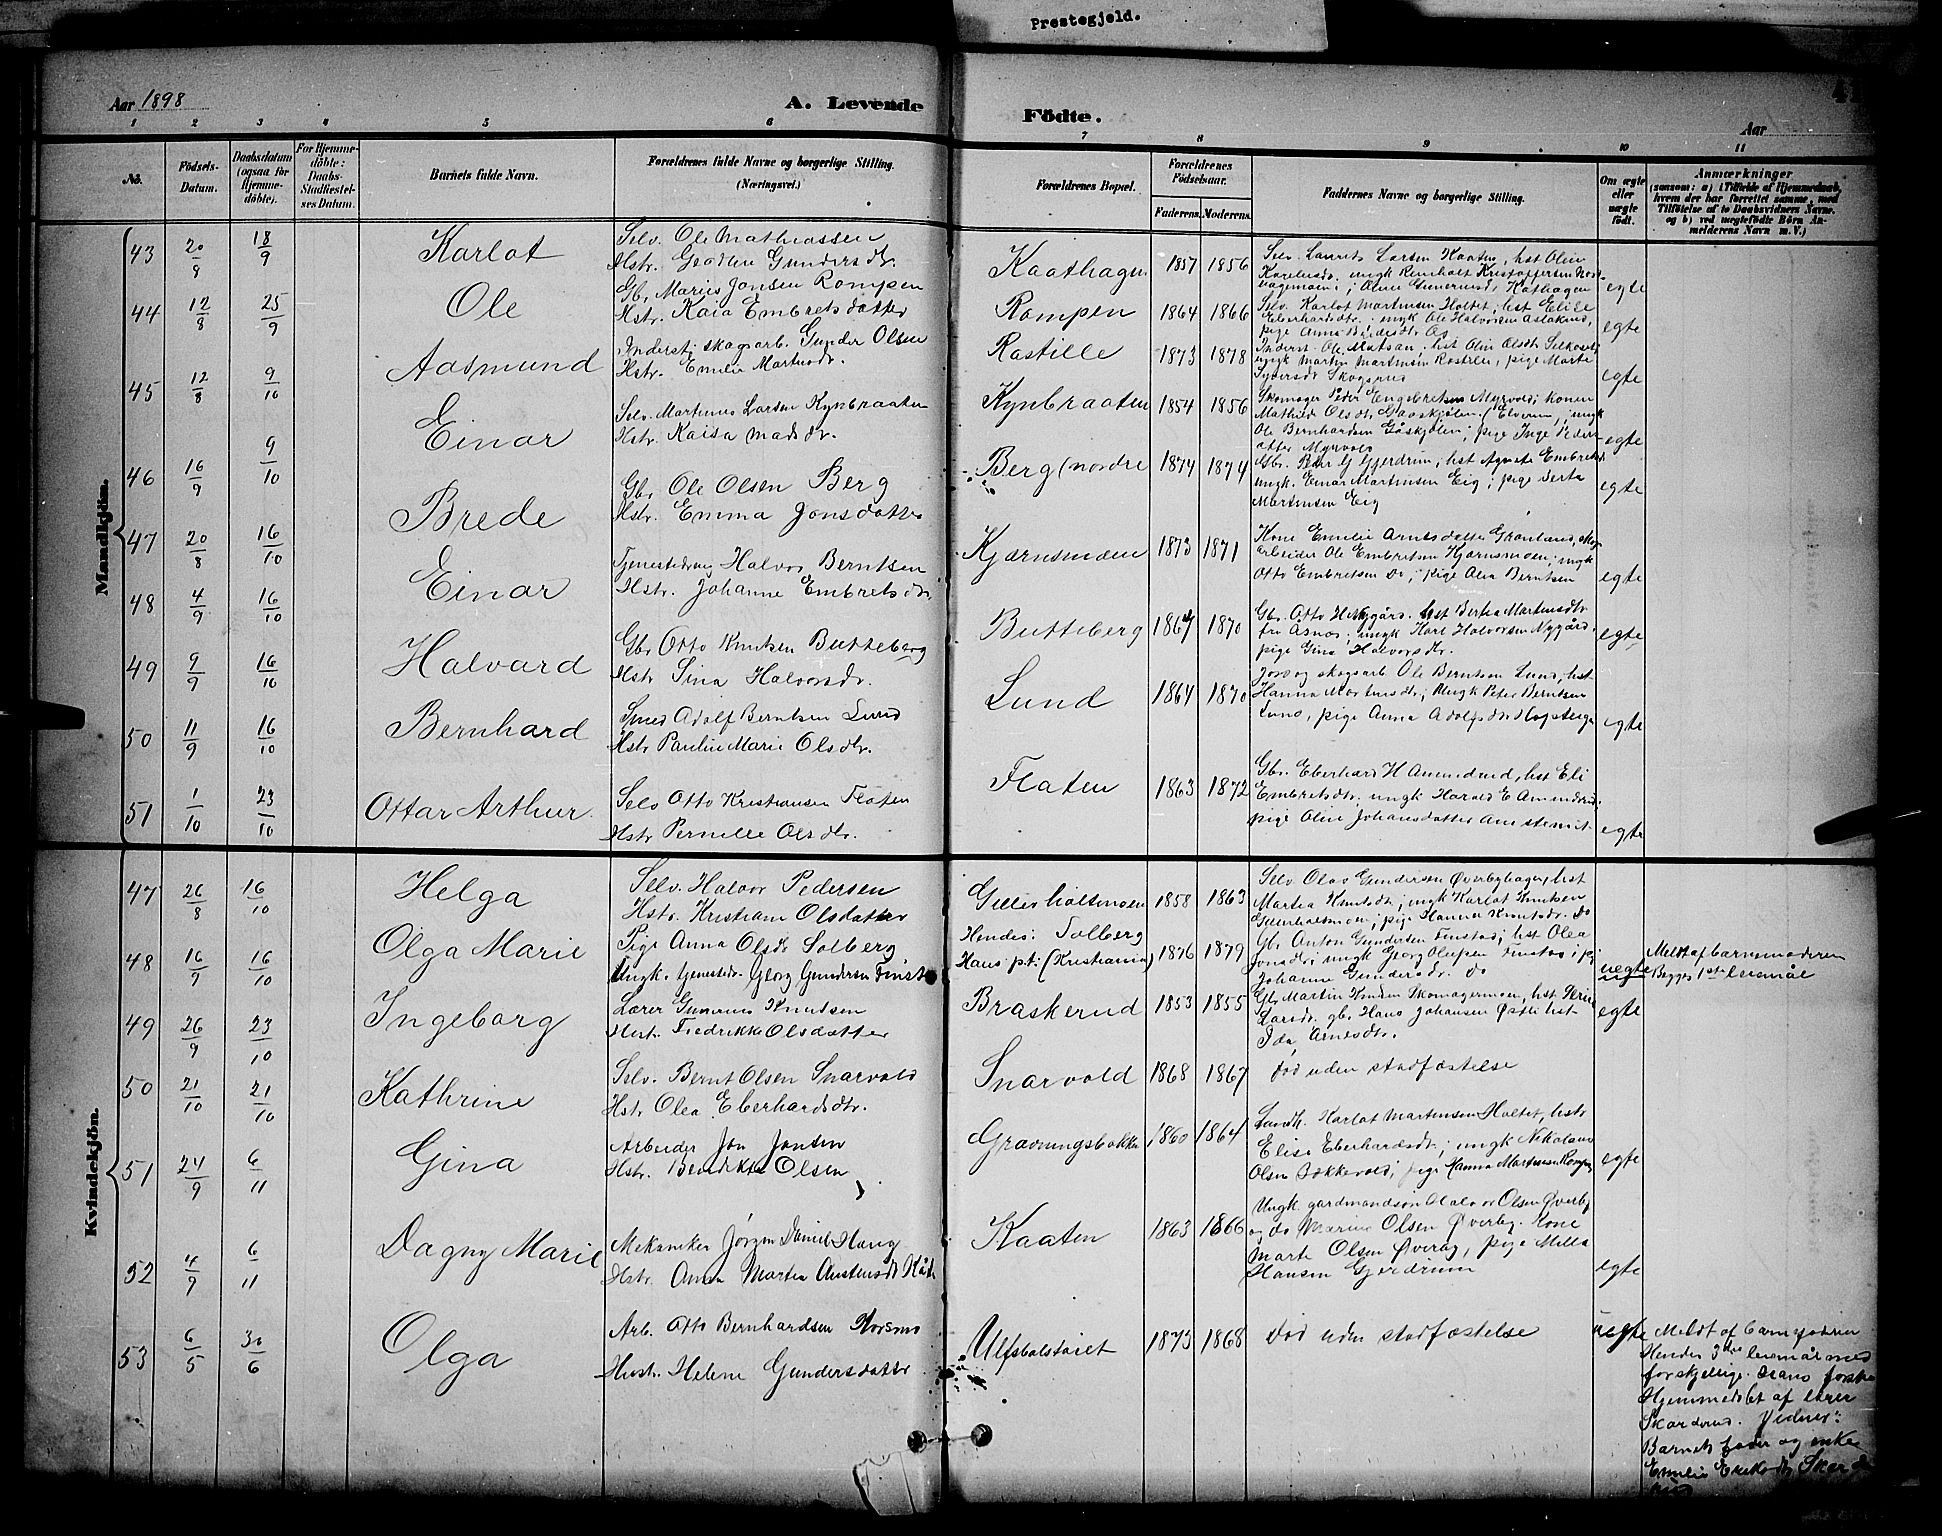 Prestegjeld.
Aar 1898
A. Levende
Födte.
Aar
1 2 3 4 5 6 7 8 9 10 11
No.
Födsels-Datum.
Daabsdatum (ogsaa for Hjemme-döbte).
For Hjemme-döbte: Daabs-Stadfæstel-ses Datum.
Barnets fulde Navn.
Forældrenes fulde Navne og borgerlige Stilling. (Næringsvei.)
Forældrenes Bopæl.
Forældrenes Födselsaar.
Faderens. Moderens.
Faddernes Navne og borgerlige Stilling.
Om ægte eller uægte födt.
Anmærkninger
(saasom: a) i Tilfælde af Hjemmedaab, hvem der har forrettet samme, med Tilföielse af to Daabsvidners Navne, og b) ved uægtefödte Börn Anmelderens Navn m. V.)
Mandkjön.
43 20/8 18/9 Karlot
Selv. Ole Mathiassen
Hstr. Gunders dtr.
Kaathagen 1857 1856
Selv. Laurits Larsen Kaaten, hst Olin
egte
44 12/8 25/9 Ole
Gb. Marius Jonsen Rompen
Hstr. Kaia Embretsdatter
Rompen 1864 1866
Selv. Karlot Martinsen Holtet, hst Elise
Eberhardsdtr. ungk Ole Halvorsen
egte
45 12/8 9/10 Aasmund
Inderst, skogsarb. Gunder Olsen
Hstr. Emelie Martinsdr.
Rastille 1873 1878
ungk Martin Martinsen, pige Marte
egte
46 16/9 9/10 Einar
Selv. Martinus Larsen Kynbraaten
Hstr. Kaisa Madsdr.
Kynbraaten 1854 1856
Skomager Peder Engebretsen Myrvold, konen
Mathilde Olsdtr Gaaskjølen (Elverum), ungk
Ole Bernhardsen Gåskjølen; pige Inge Peders
datter Myrvold
egte
47 20/8 16/10 Brede
Gb. Ole Olsen Berg
Hstr. Emma Jonsdatter
Berg (nordre 1874 1874
Gb. Peder G Gjerdrum, hst Agnete Embretsd.
ungk. Einar Martinsen Eig; pige Berta
Martinsen Eig
egte
48 4/9 16/10 Einar
Tjenestedreng Halvor Berntsen
Hstr. Johanne Embretsdtr.
Kjærnsmoen 1873 1871
Kone Emilie Arnesdatter Grønland, skog
arbeider Ole Embretsen Kjernsmoen; ungk
Otto Embretsen do; pige Olea Berntsen
egte
49 9/9 16/10 Halvard
Gbr Otto Knutsen Butteberg
Hstr Sina Halvorsdr.
Butteberg 1864 1870
Gb. Otto H Nygård. hst Berta Martinsdtr
fra Åsnes. ungk Karl Halvorsen Nygård.
pige Gina Halvorsdr.
egte
50 11/9 16/10 Bernhard
Smed Adolf Berntsen Lund
Hstr Pauline Marie Olsdtr.
Lund 1864 1870
Jord og skogsarb Ole Berntsen Lund, hst
Hanna Mortensdtr; Ungk Peter Berntsen
Lund, pige Anna Adolfsd
egte
51 1/10 23/10 Ottar Arthur.
Selv Otto Kristiansen Flaten
Hstr Pernille Olsdtr.
Flaten 1863 1872
Gbr. Eberhard H Amundrud, hst Eli
Embretsdtr. ungk Harald E Amundrud.
pige Olise Johansdatter
egte
Kvindekjön.
47 26/8 16/10 Helga
Selv. Halvor Pedersen
Hstr. Kristiane Olsdatter
Gillerholtsmoen 1858 1863
Selv Olav Gundersen Øverbyhagen, hst
Martea Knutsdtr; ungk Karlot Knutsen
Gillerholtsmoen; pige Hanna Knutsdtr. do
48 16/9 16/10 Olga Marie
Pige Anna Olsdtr Solberg
Ungk. tjenestedr. Georg Gundersen Finstad
Hendes: Solberg
Hans p.t: (Kristiania) 1876 1879
Gb. Anton Gundersen Finstad; hst Olea
Jonsdtr; ungk Georg Olufsen Finstad; pi
Johanne Gundersdr. do
uegte
Meldt af barnemoderen
Begges 1ste leiermål
49 26/9 23/10 Ingeborg
Lærer Gunerius Knudsen
Hust. Fredrikke Olsdatter
Braskerud 1853 1855
Gb. Martin Knudsen Skomagermoen, hst
Larsdr. gb. Hans Johansen Østli hst
Ida Arnesdtr.
egte
50 21/10 21/10 Kathrine
Selv. Bernt Olsen Snarvold
Hstr Olea Eberhardsdtr.
Snarvold 1868 1867
Død uden stadfæstelse
51 24/9 6/11 Gina
Arbeider Jon Jonsen
Hstr. Benedikte Olsen
Gravningsbakken 1860 1864
Landh. Karlot Martensen Holtet, hstr
Elise Eberhardsdtr.; ungk Nikolaus
Olsen Bekkevold; pige Hanna Martensen Rompen
egte
52 4/9 6/11 Dagny Marie
Mekaniker Jørgen Daniel Haug
Hstr. Anna Martea Austensdtr Kåten
Kaaten 1863 1866
Ungk. gardmandsøn Olalo or Olsen Øverby
og do Marius Olsen Øverby. Kone
Marte Olsen Øverby, pige Milla
Hansen Gjerdrum
egte
53 6/5 30/6 Olga
Arb. Otto Bernhardsen Norsmo
Hust. Helene Gundersdatter
Ulfsbolsæiet 1873 1868
Død uden stadfæstelse
uegte
Meldt af barnefaderen
Hendes 3die leiermål med
forskjellige. Hans første
Hjemmedøbt af lærer
Skarderud. Vidner:
Barnets fader og enke
Emelie Eriksdtr